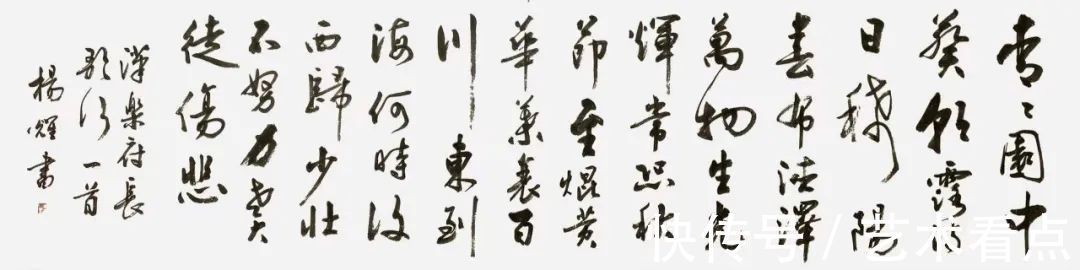 青〻園中
葵朝露待
日晞陽
春布德澤
萬物生光
輝常恐秋
節至焜黃
華葉衰百
川東到
海何時復
西歸少壯
不努力老大
徒傷悲
漢樂府長
歌行一首
楊耀書
快传号 / 艺术看点